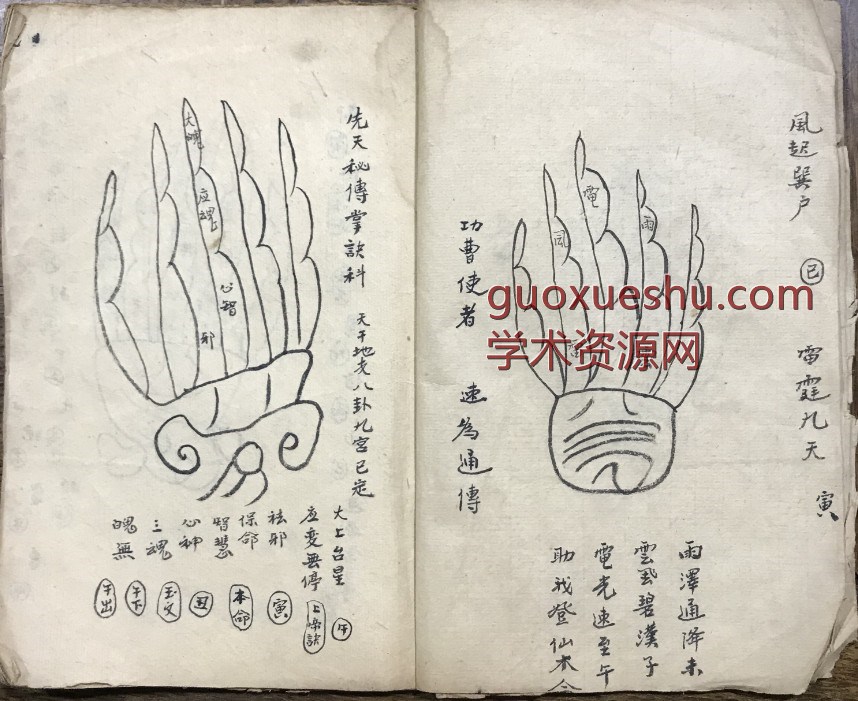 風起巽户 巳 雷霆九天 寅
雨澤通降未
雲風碧漢子
電光速至午
助我登仙本命
功曹使者 速為通傳
電
風
雨
先天秘傳掌訣科 天干地支八卦九宮已定
大魄
应魂
心智
邪
大上台星 午
应变無停 上嗓訣
祛邪 寅
保命 本命
智慧 丑
心神 玉文
三魂 午下
魄無 午出
guoxueshu.com
学术资源网